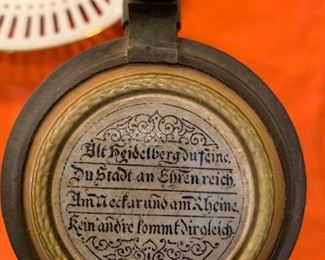 Alt Heidelberg du feine,
Du Stadt an Ehren reich,
Am Neckar und am Rheine
Kein andre kommt dir gleich.